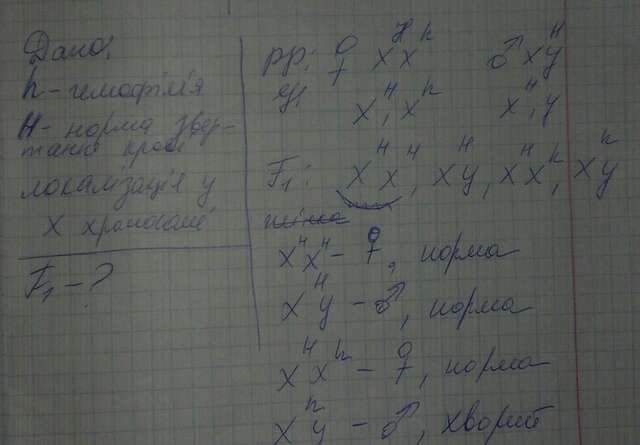 Дано:
h - гемофілія
H - норма звер-
тання крові
локалізація у
X хромосомі
F₁ - ?
pp: ♀ XᴴXʰ ♂ XᴴY
g: Xᴴ, Xʰ Xᴴ, Y
F₁: XᴴXᴴ, XᴴY, XᴴXʰ, XʰY
XᴴXᴴ - ♀, норма
XᴴY - ♂, норма
XᴴXʰ - ♀, норма
XʰY - ♂, хворий